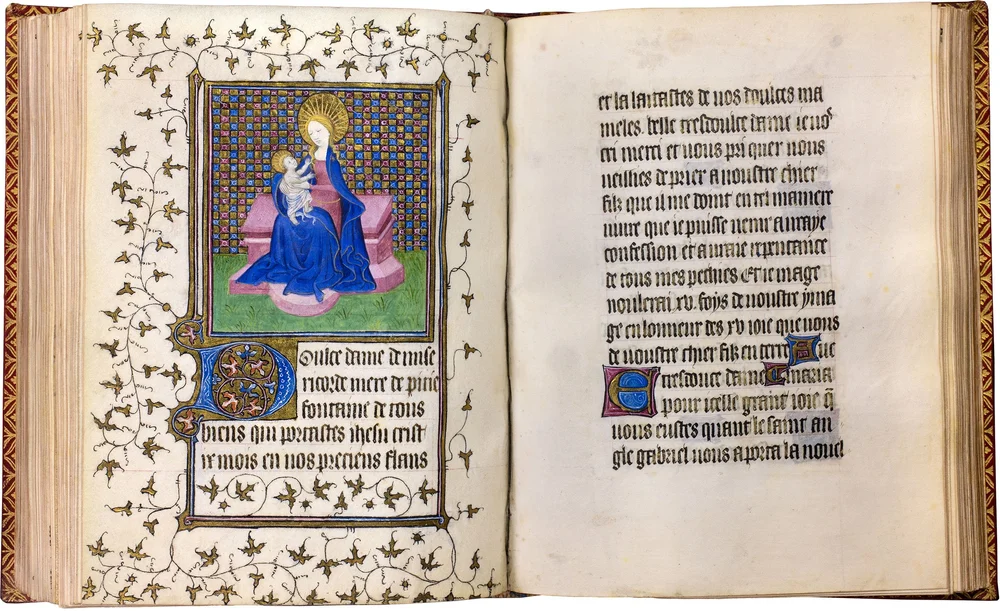 Doulce dame de mise
ricorde mere de pitie
fontaine de tous
biens qui portastes ihesu crist
ix mois en vos precieus flans
et la laitastes de vos doulces ma
meles. belle tresdoulce dame ie vous
cri merci et vous pri quer vous
veilliez deprier a voustre chier
filz que il me doint en tel maniere
vivre que ie puisse venir a vraye
confession et a vraie repentance
de tous mes pechies Et ie m age
noulerai xv. foys de voustre yma
ge en lonneur des xv ioie que vous
de voustre chier filz en terre Ave
E tresdouce dame maria
pour icelle grant ioie q̄
vous eustes quant le saint an
gle gabriel vous aporta la nouel